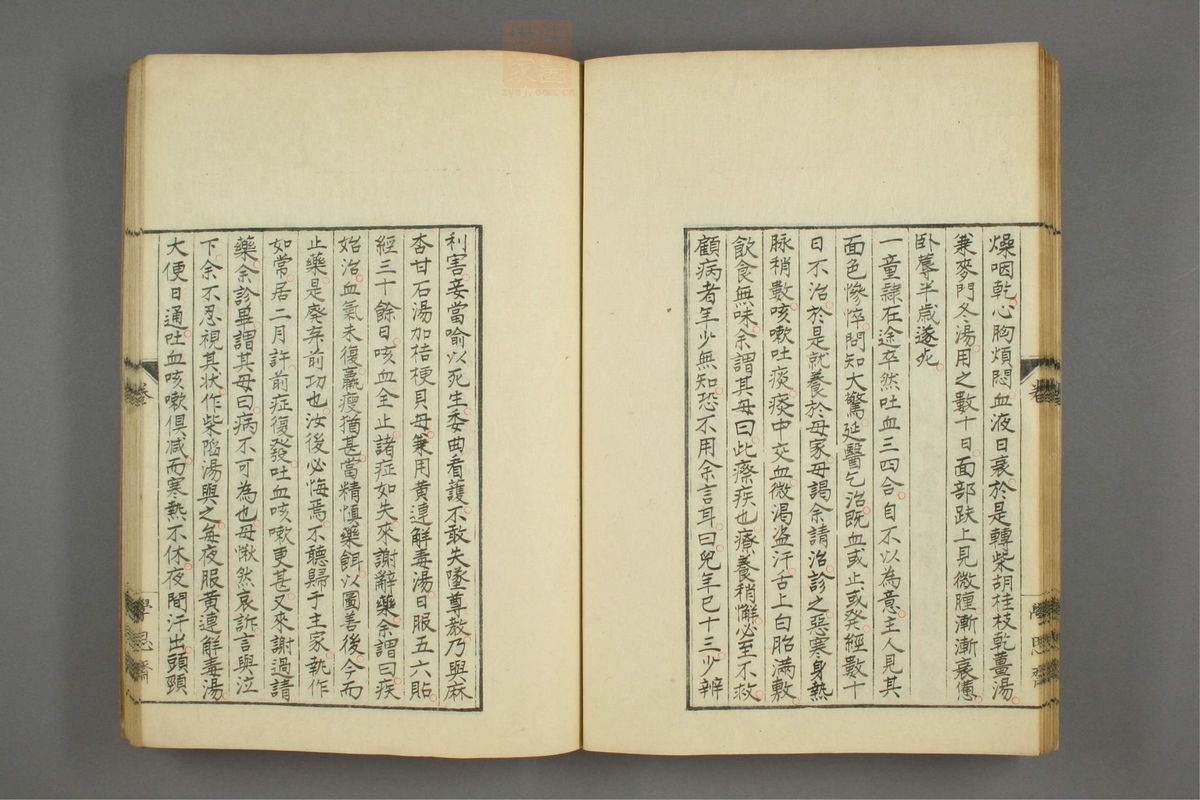 燥咽乾心胸煩悶血液日衰於是轉柴胡桂枝乾薑湯
兼麥門冬湯用之數十日面部趺上見微腫漸漸衰憊
臥蓐半歲遂死
一童隸在途卒然吐血三四合自不以為意主人見其
面色慘悴問知大驚延醫乞治既血或止或發經數十
日不治於是就養於母家母謁余請治診之惡寒身熱
脉稍數咳嗽吐痰痰中交血微渴盜汗舌上白胎滿敷
飲食無味余謂其母曰此瘵疾也療養稍懈必至不救
顧病者年少無知恐不用余言耳曰兒年已十三少辨
利害妾當喻以死生委曲看護不敢失墜尊教乃與麻
杏甘石湯加桔梗貝母兼用黃連解毒湯日服五六貼
經三十餘日咳血全止諸症如失來謝辭藥余謂曰疾
始治血氣未復羸瘦猶甚當精慎藥餌以圖善後今而
止藥是廢弃前功也汝後必悔焉不聽歸于主家執作
如常居二月許前症復發吐血咳嗽更甚又來謝過請
藥余診畢謂其母曰病不可為也母愀然哀訴言與泣
下余不忍視其狀作柴陷湯與之每夜服黃連解毒湯
大便日通吐血咳嗽俱減而寒熱不休夜間汗出頭頸
卷
學思齋